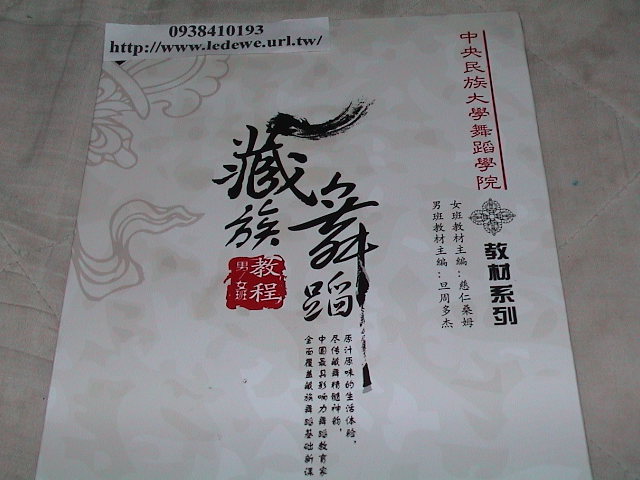 0938410193
http://www.ledewe.url.tw/
中央民族大學舞蹈學院
教材系列
女班教材主編：慈仁桑姆
男班教材主編：旦周多杰
藏族
舞蹈
教程
男/女班
原汁原味的生活体验，
尽传藏舞精髓神韵，
中国最具影响力舞蹈教育家
全面覆盖藏族舞蹈基础新课